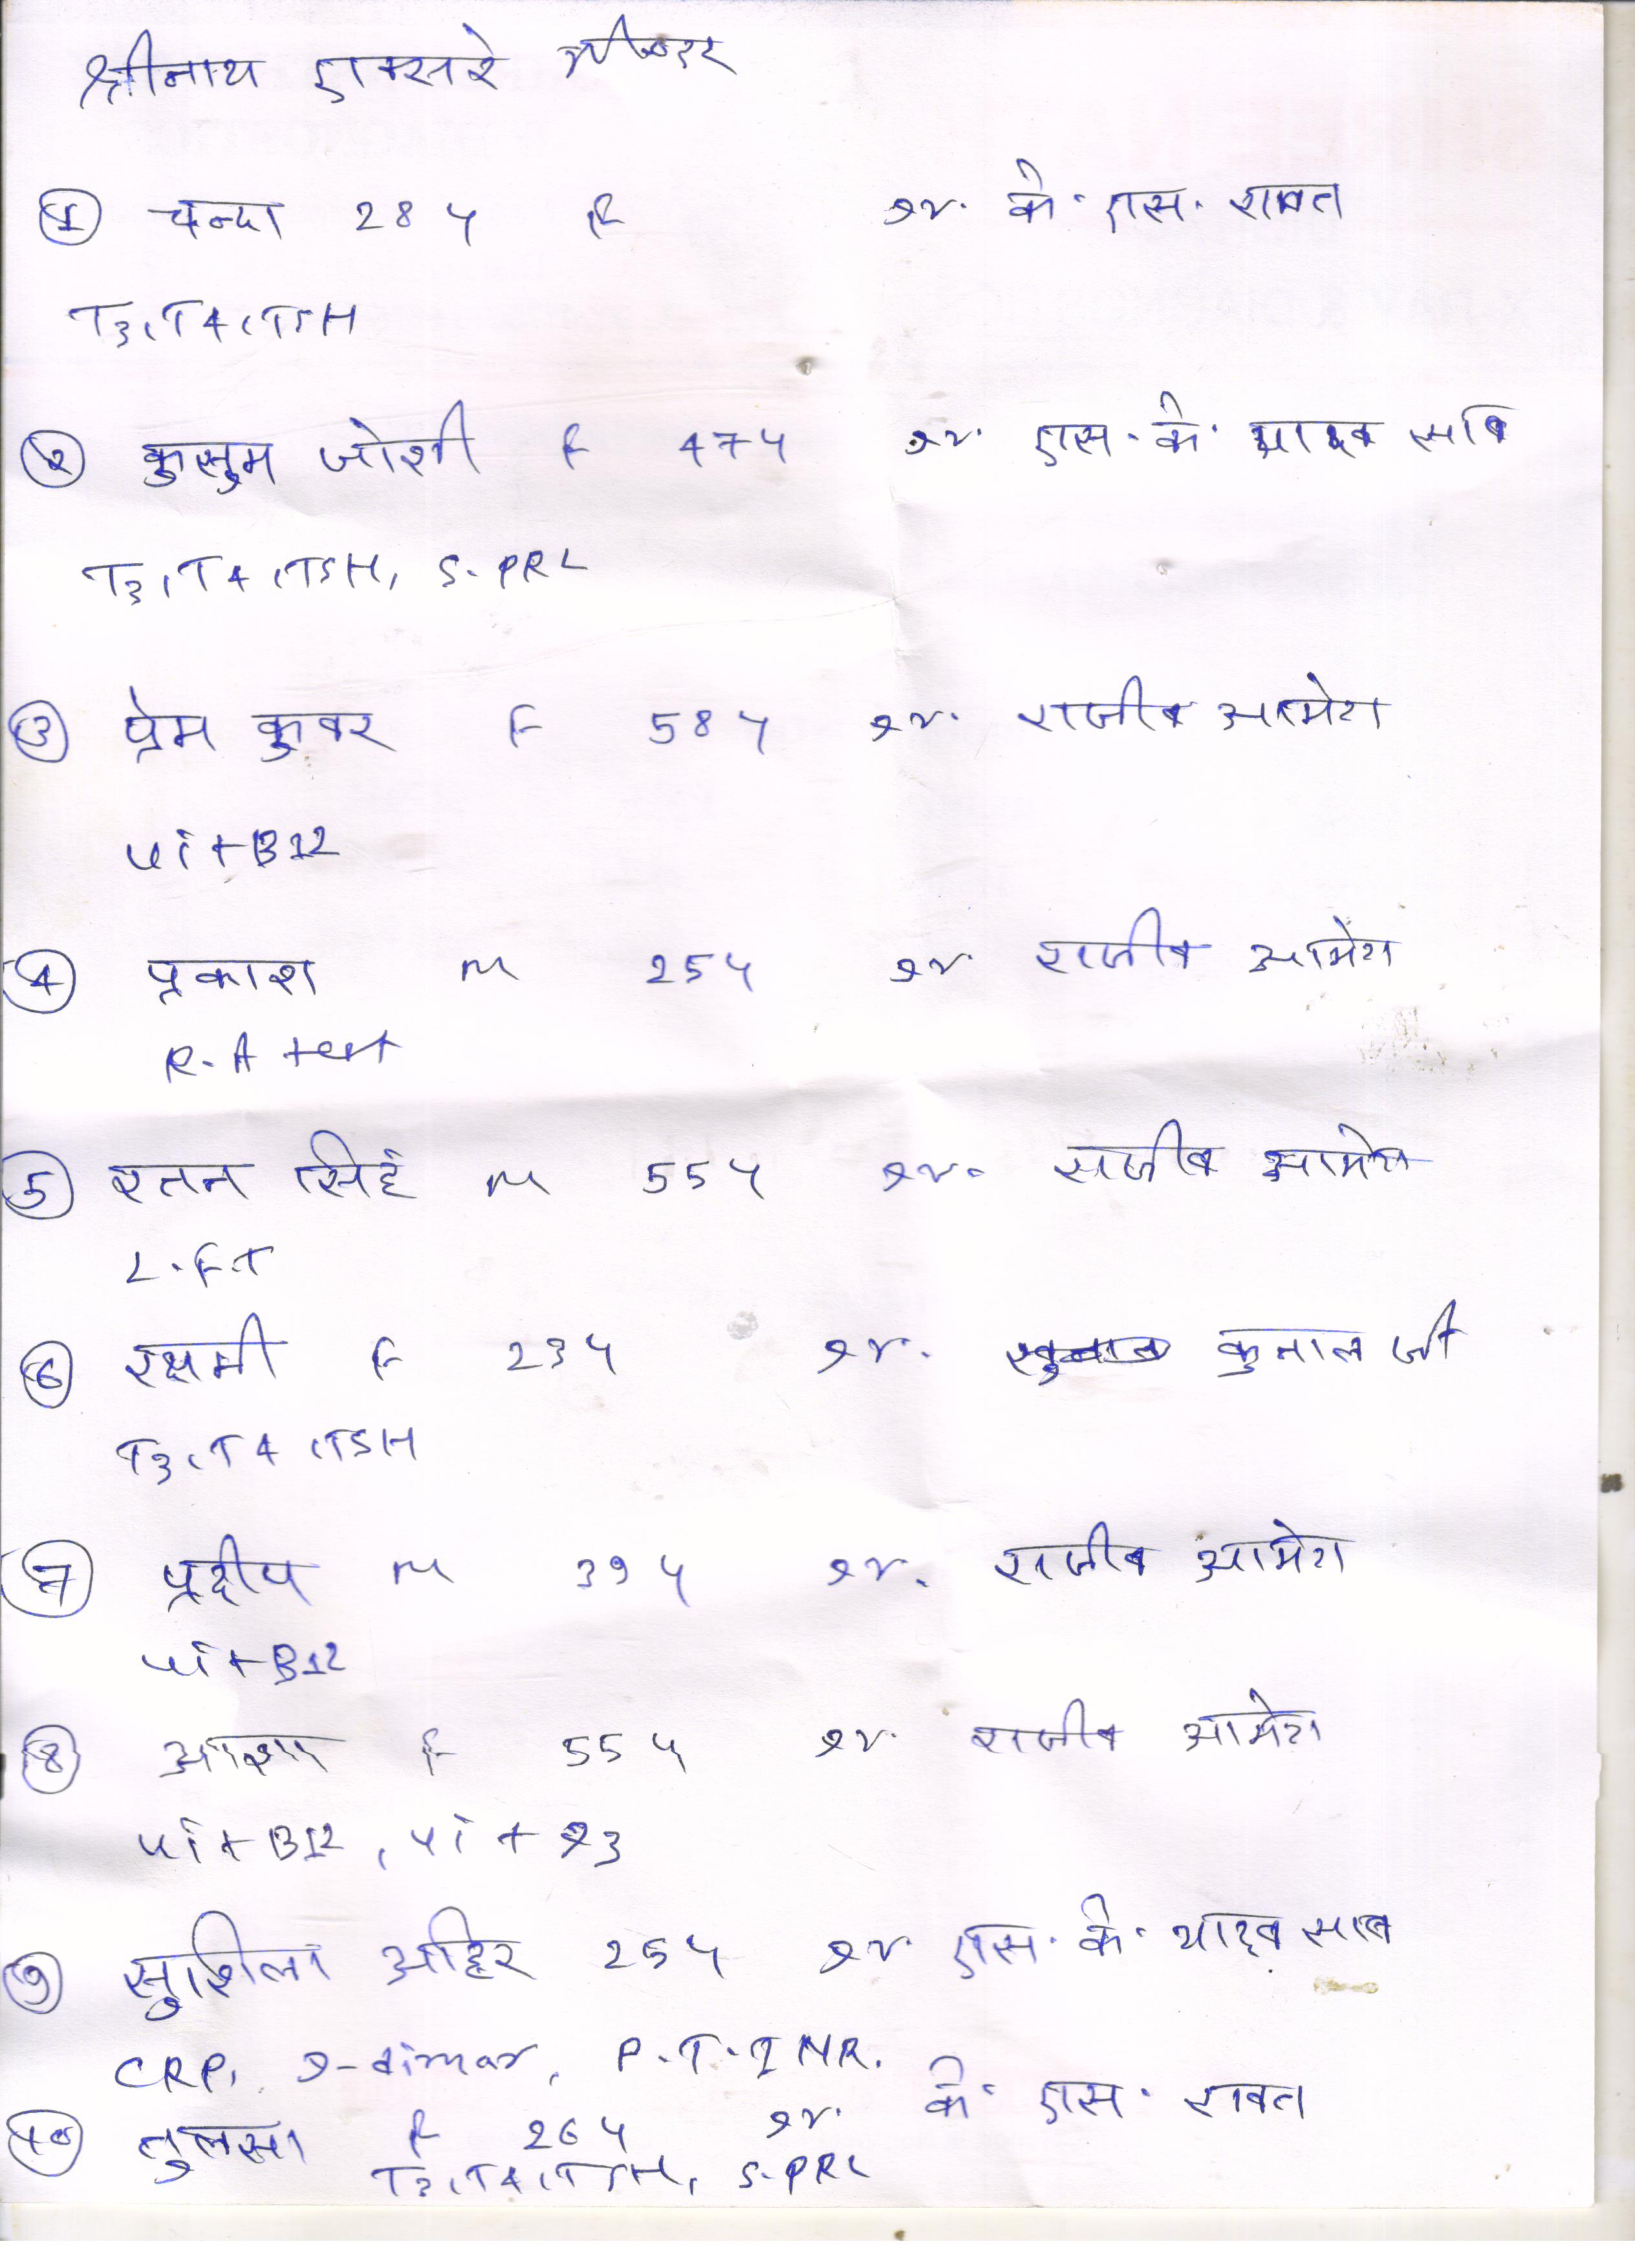 श्रीनाथ एक्सरे
① चन्दा 28 y F Dr. के. एस. रावत
T3, T4, TSH
② कुसुम जोशी F 47 y Dr. एस. के. यादव साब
T3, T4, TSH, S. PRL
③ प्रेम कुवर F 58 y Dr. राजीव आमेटा
Vit B12
④ प्रकाश M 25 y Dr. राजीव आमेटा
R.A test
⑤ रतन सिहं M 55 y Dr. राजीव आमेटा
L.F.T
⑥ F 23 y Dr. कुनाल जी
T3, T4, TSH
⑦ प्रदीप M 39 y Dr. राजीव आमेटा
Vit B12
⑧ आशा F 55 y Dr. राजीव आमेटा
Vit B12, Vit D3
⑨ सुशिला अहिर 25 y Dr. एस. के. यादव साब
CRP, D-dimar, P.T.INR.
⑩ तुलसी F 26 y Dr. के. एस. रावत
T3, T4, TSH, S.PRL